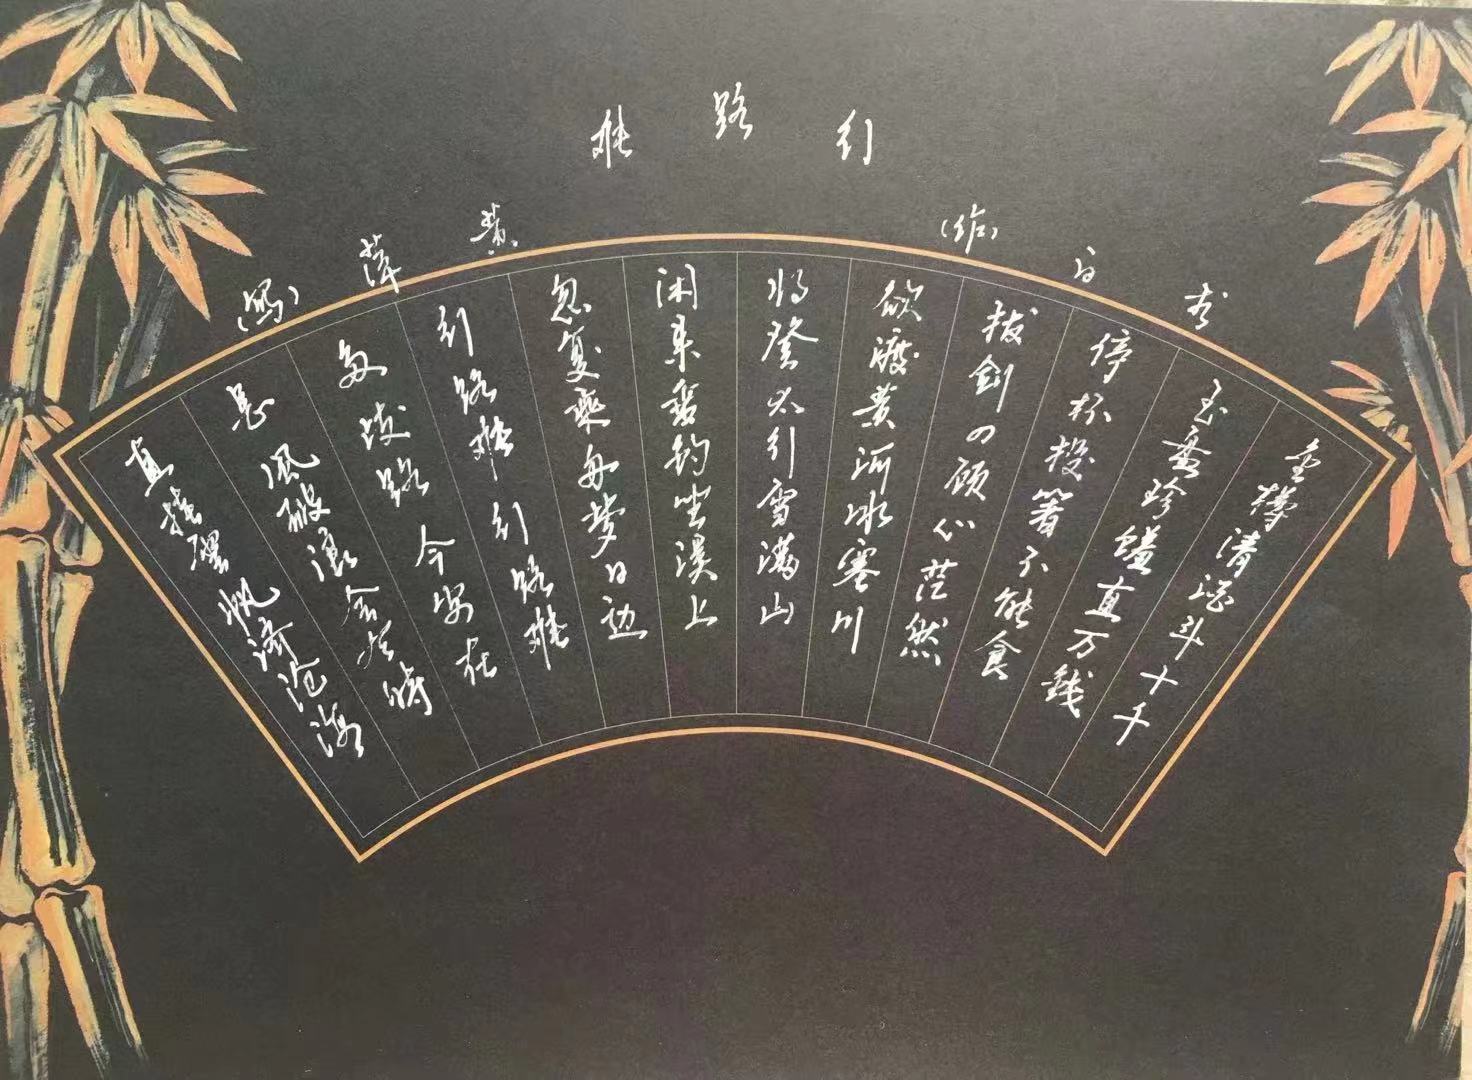 行路难
李白（作）
黄萍（写）
金樽清酒斗十千
玉盘珍馐直万钱
停杯投箸不能食
拔剑四顾心茫然
欲渡黄河冰塞川
将登太行雪满山
闲来垂钓坐溪上
忽复乘舟梦日边
行路难行路难
多歧路今安在
长风破浪会有时
直挂云帆济沧海